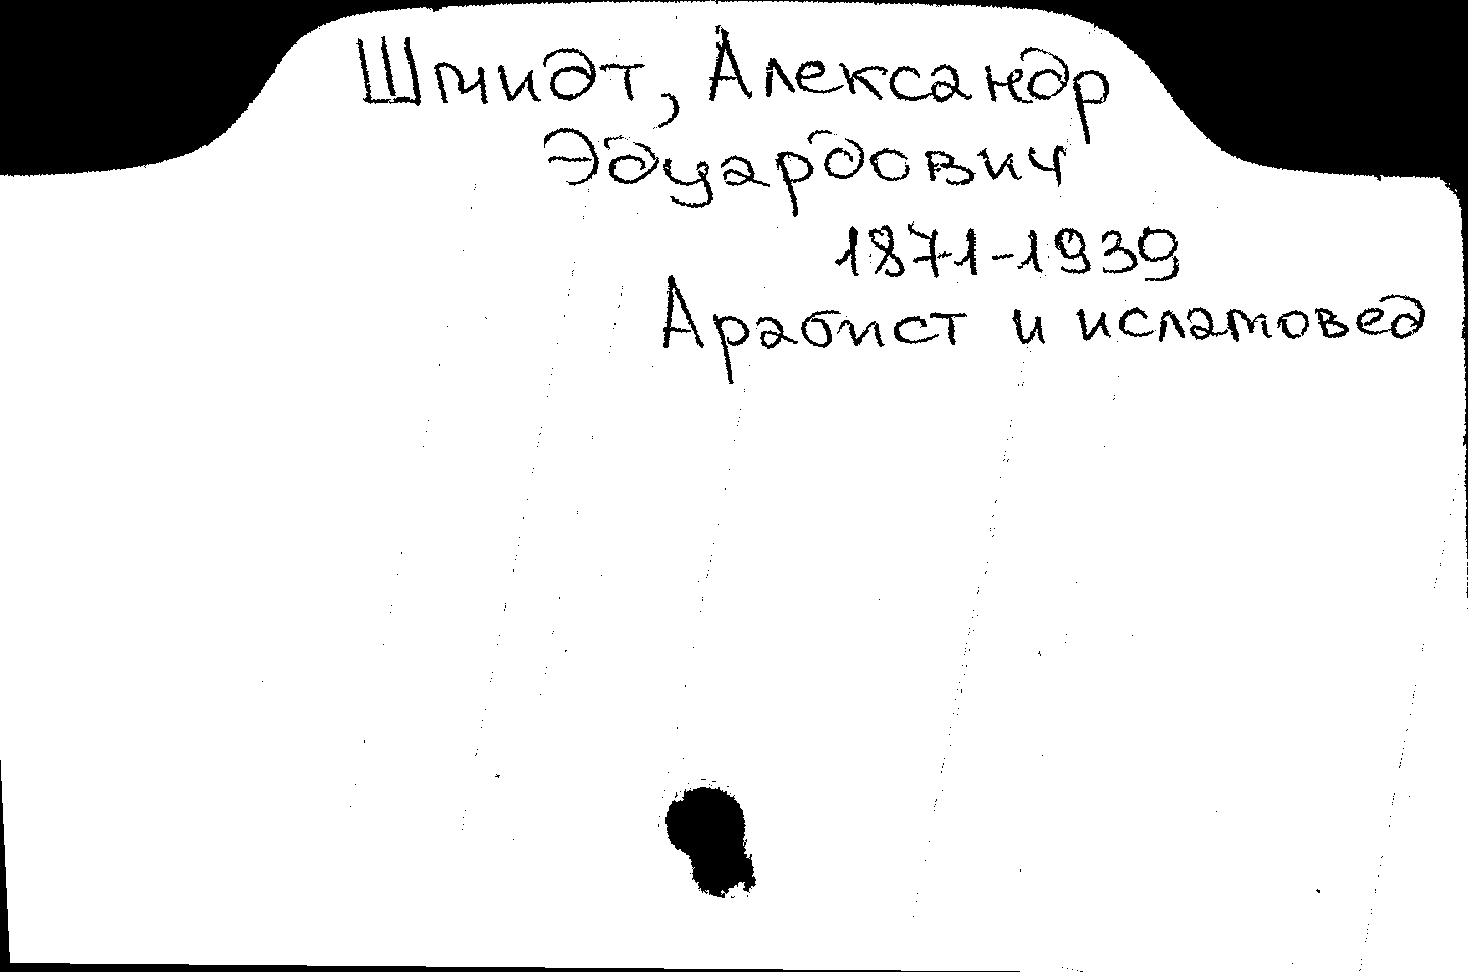 Шмидт, Александр
Эдуардович
1871-1939
Арабист и исламовед